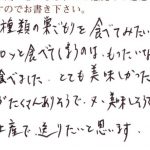 すのでお書き下さい。
種類の栗ごもりを食べてみたい
ロッと食べてしまうのは、もったいな
食べました。とても美味しかった
がたくさんありそうで、又、美味しそうで
土産で送りたいと思います。